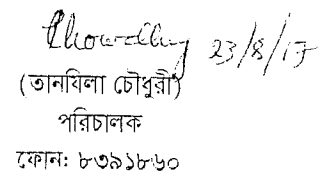 Chowdhury 23/8/17
(তানযিলা চৌধুরী)
পরিচালক
ফোন: ৮৩৯১৮৬০